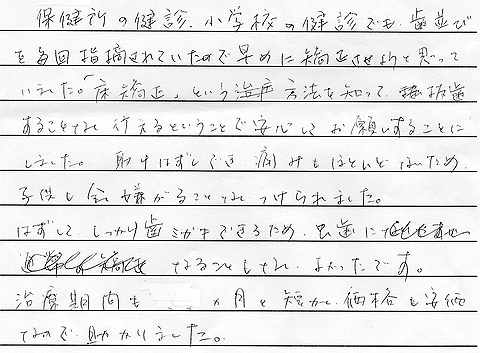 保健所の健診、小学校の健診でも、歯並び
を毎回指摘されていたので早めに矯正させようと思って
いました。「床矯正」という治療方法を知って、抜歯
することなく行えるということで安心してお願いすることに
しました。取りはずしでき痛みもほとんどないため、
子供も全く嫌がることなくつけられました。
はずしてしっかり歯ミガキできるため、虫歯に
なることもなく、よかったです。
治療期間も ヶ月と短かく価格も安価
なので、助かりました。